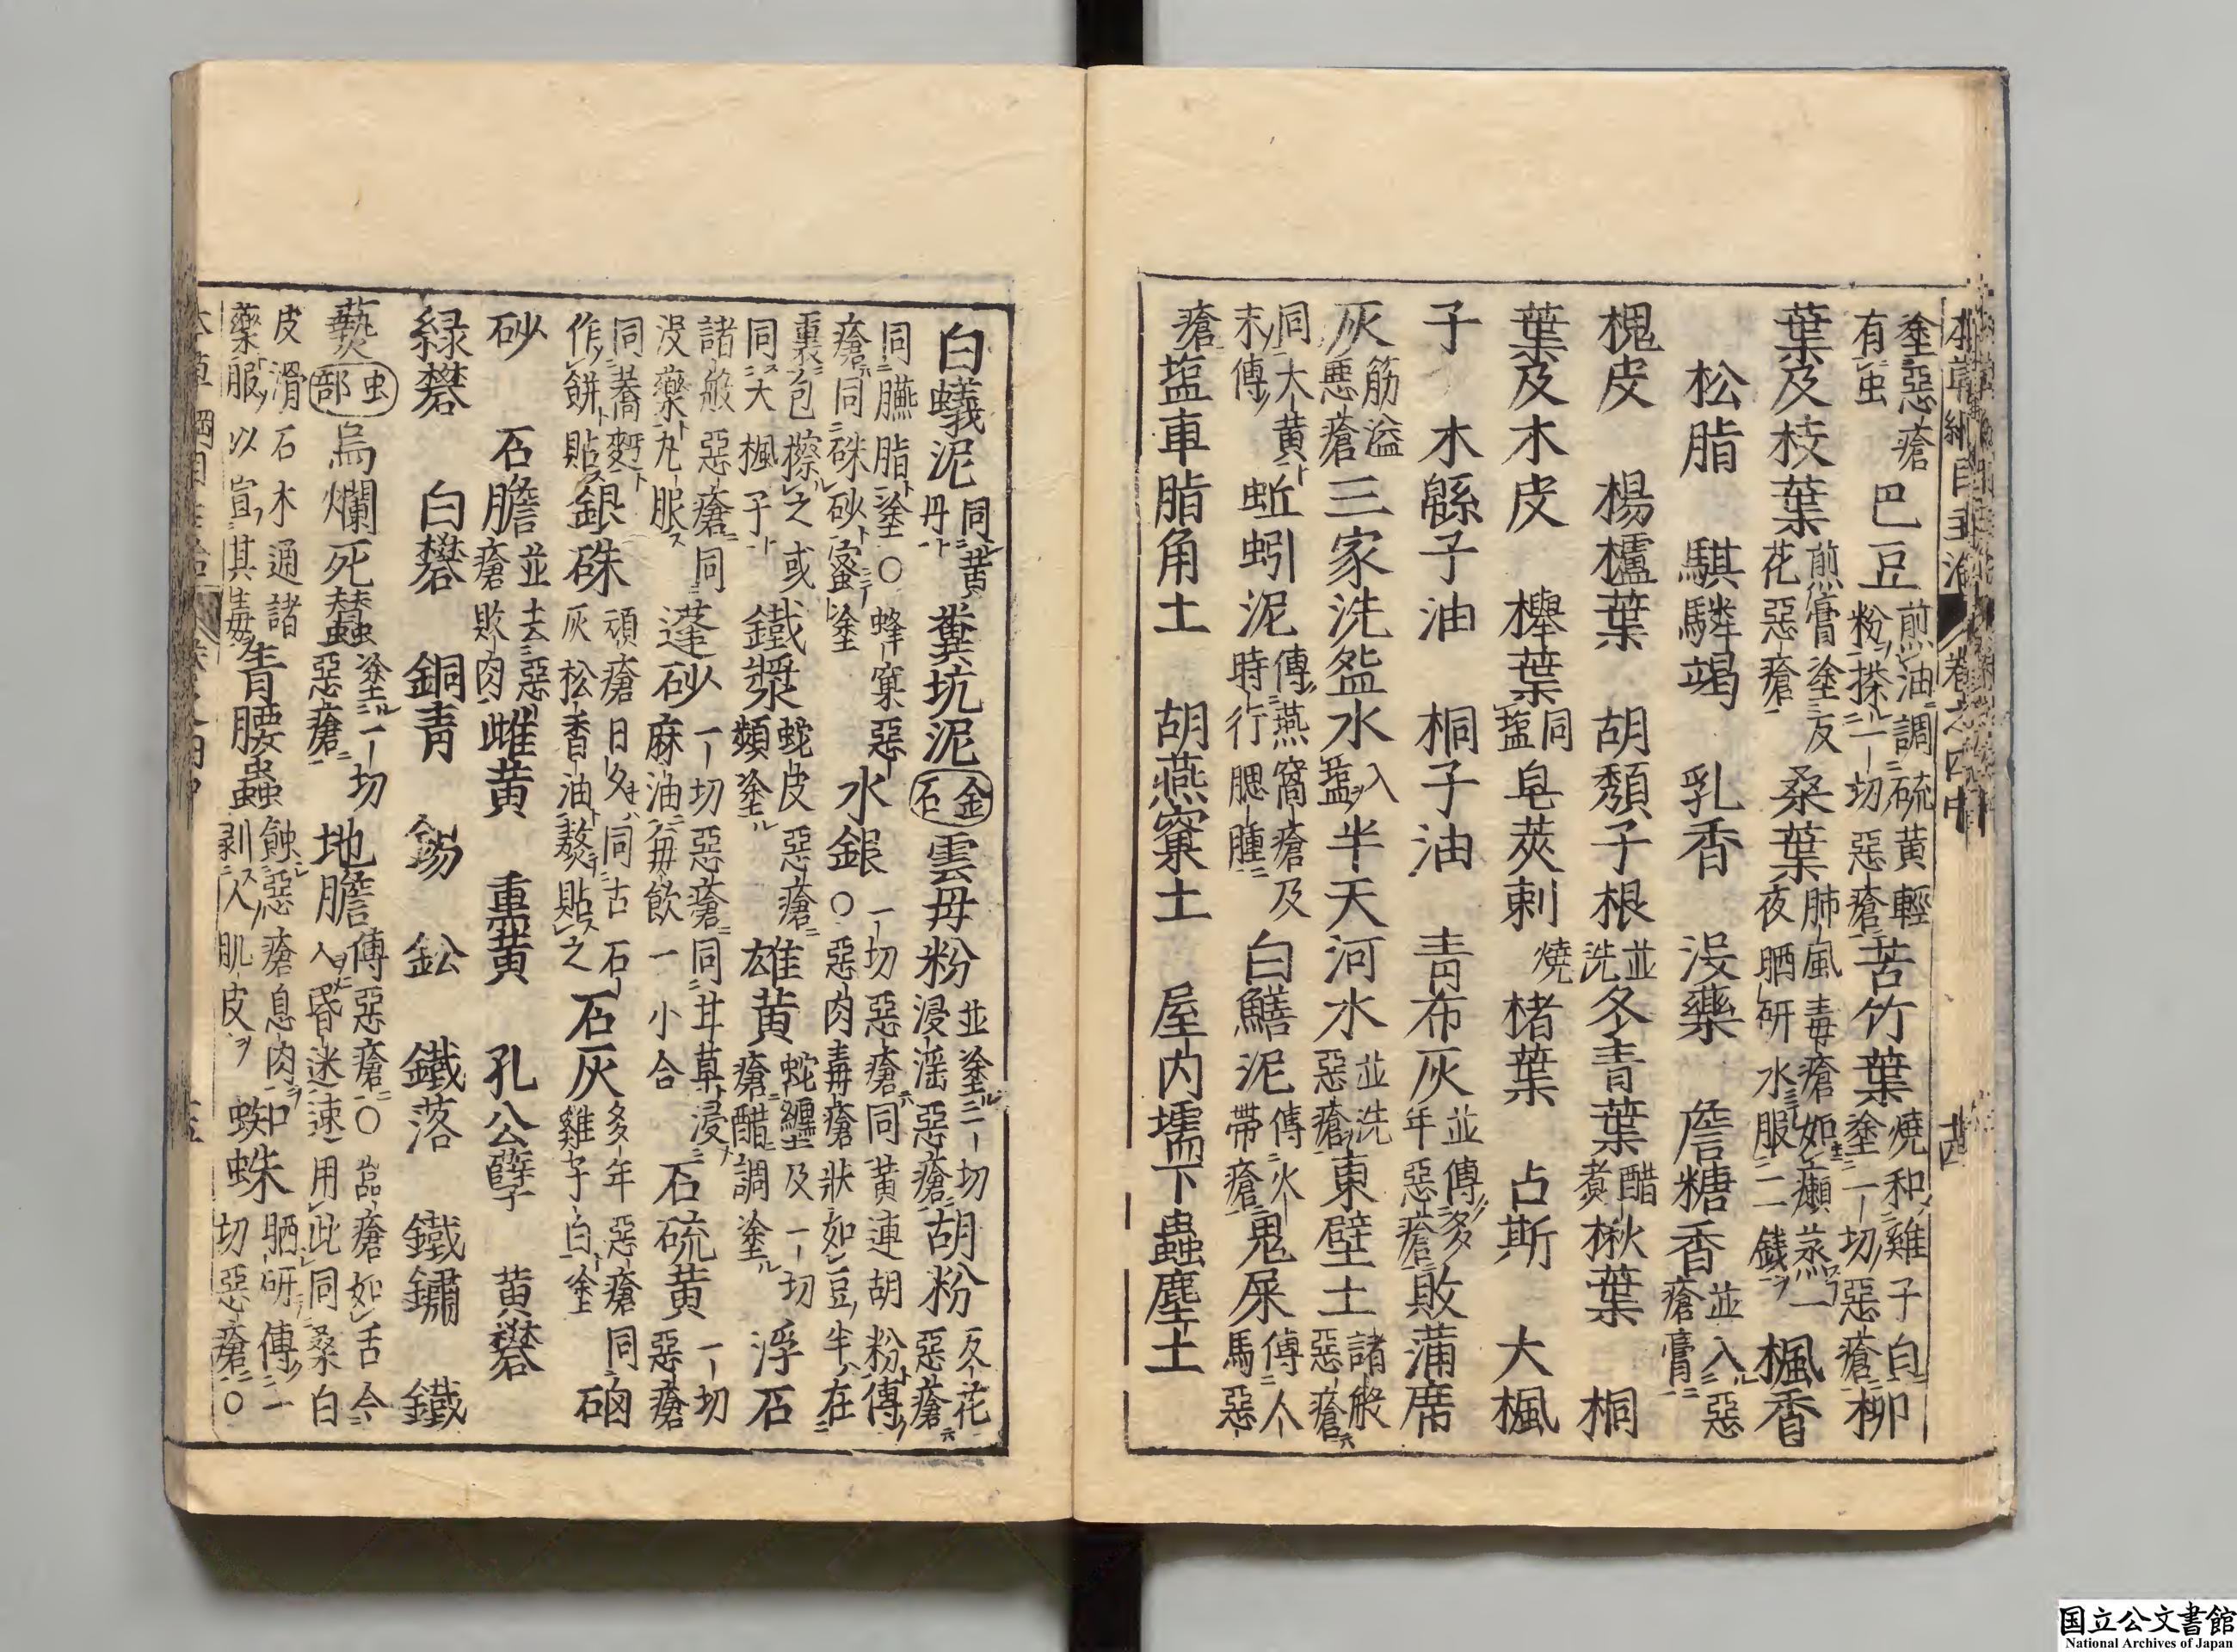 塗惡瘡有虫巴豆煎油調硫黄輕粉搽一切惡瘡苦竹葉燒和雞子白塗一切惡瘡柳
葉及枝葉煎膏塗反花惡瘡桑葉肺風毒瘡如癩蒸一夜晒研水服二錢楓香
松脂 騏驎竭 乳香 没藥 詹糖香並入惡瘡膏
槐皮 楊櫨葉 胡頽子根並洗冬青葉醋煮楸葉 桐
葉及木皮 欅葉同鹽皂莢刺燒楮葉 占斯 大楓
子 木緜子油 桐子油 青布灰並傅多年惡瘡敗蒲席
灰筋溢惡瘡三家洗盌水入鹽半天河水並洗惡瘡東壁土諸般惡瘡
同大黄末傅蚯蚓泥傅時行腮腫燕窩瘡及白鱔泥傅火帶瘡鬼屎傅人馬惡
瘡鹽車脂角土 胡燕窠土 屋内壖下蟲塵土
白蟻泥同黄丹糞坑泥金石雲母粉並塗一切浸滛惡瘡胡粉反花惡瘡
同臙脂塗○蜂窠惡瘡同硃砂蜜塗水銀一切惡瘡同黄連胡粉傅○惡肉毒瘡狀如豆半在
裏包擦之或同大楓子鐵漿蛇皮惡瘡頻塗雄黄蛇纏及一切瘡醋調塗浮石
諸般惡瘡同没藥丸服蓬砂一切惡瘡同耳草浸麻油每飲一小合石硫黄一切惡瘡
同蕎麪作餅貼銀硃頑瘡日久同古石灰松香油熬貼之石灰多年惡瘡同雞子白塗硇
砂 石膽並去惡瘡敗肉雌黄 熏黄 孔公孼 黄礬
緑礬 白礬 銅青 錫 鈆 鐵落 鐵鏽 鐵
爇虫部烏爛死蠶塗一切惡瘡地膽傅惡瘡○嵓瘡如舌令人昏迷速用此同桑白
皮滑石木通諸藥服以宣其毒青腰蟲蝕惡瘡息肉剥人肌皮蜘蛛晒研傅一切惡瘡○
国立公文書館
National Archives of Japan